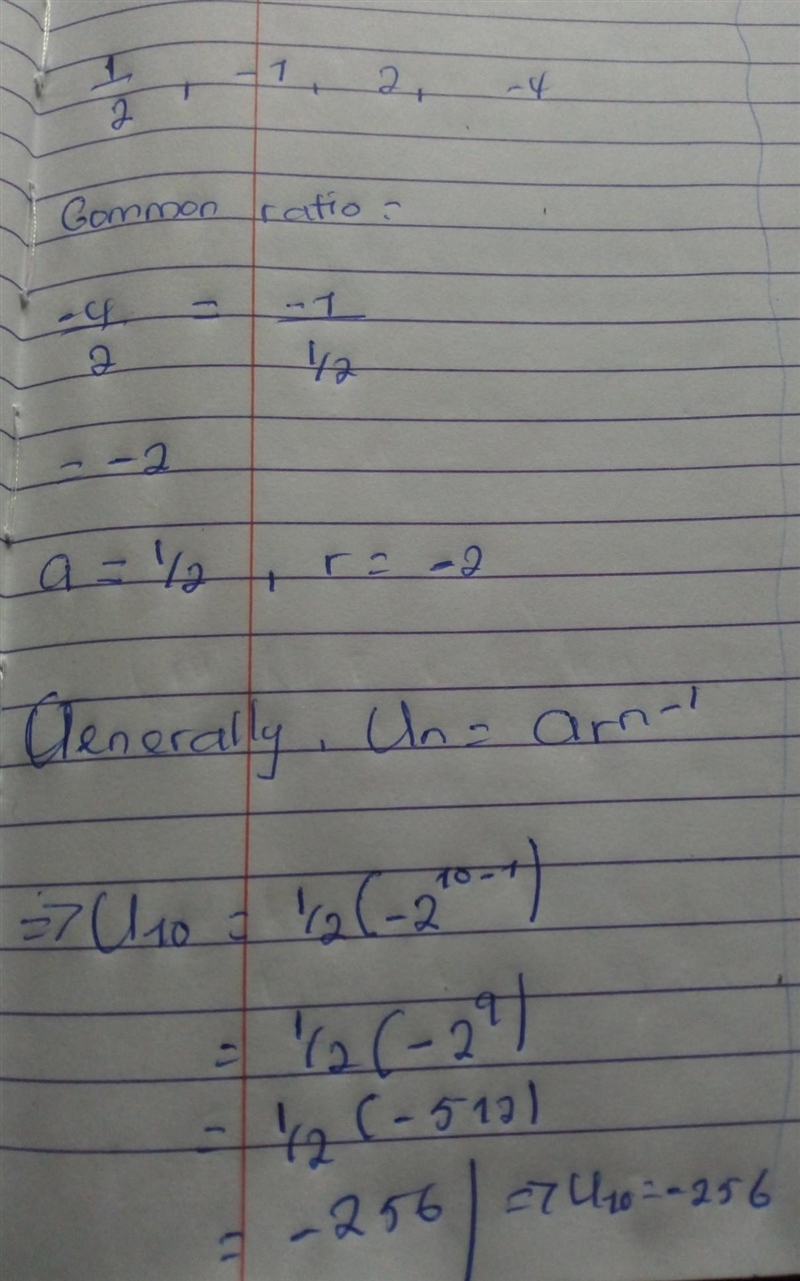 1/2, -1, 2, -4
Common ratio =
-4/2 = -1/1/2
= -2
a = 1/2, r = -2
Generally, Un = arn-1
=> U10 = 1/2(-2^10-1)
= 1/2(-2^9)
= 1/2(-512)
= -256 | => U10 = -256